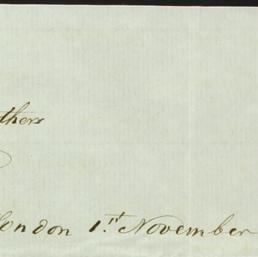 thers
London 1.st November